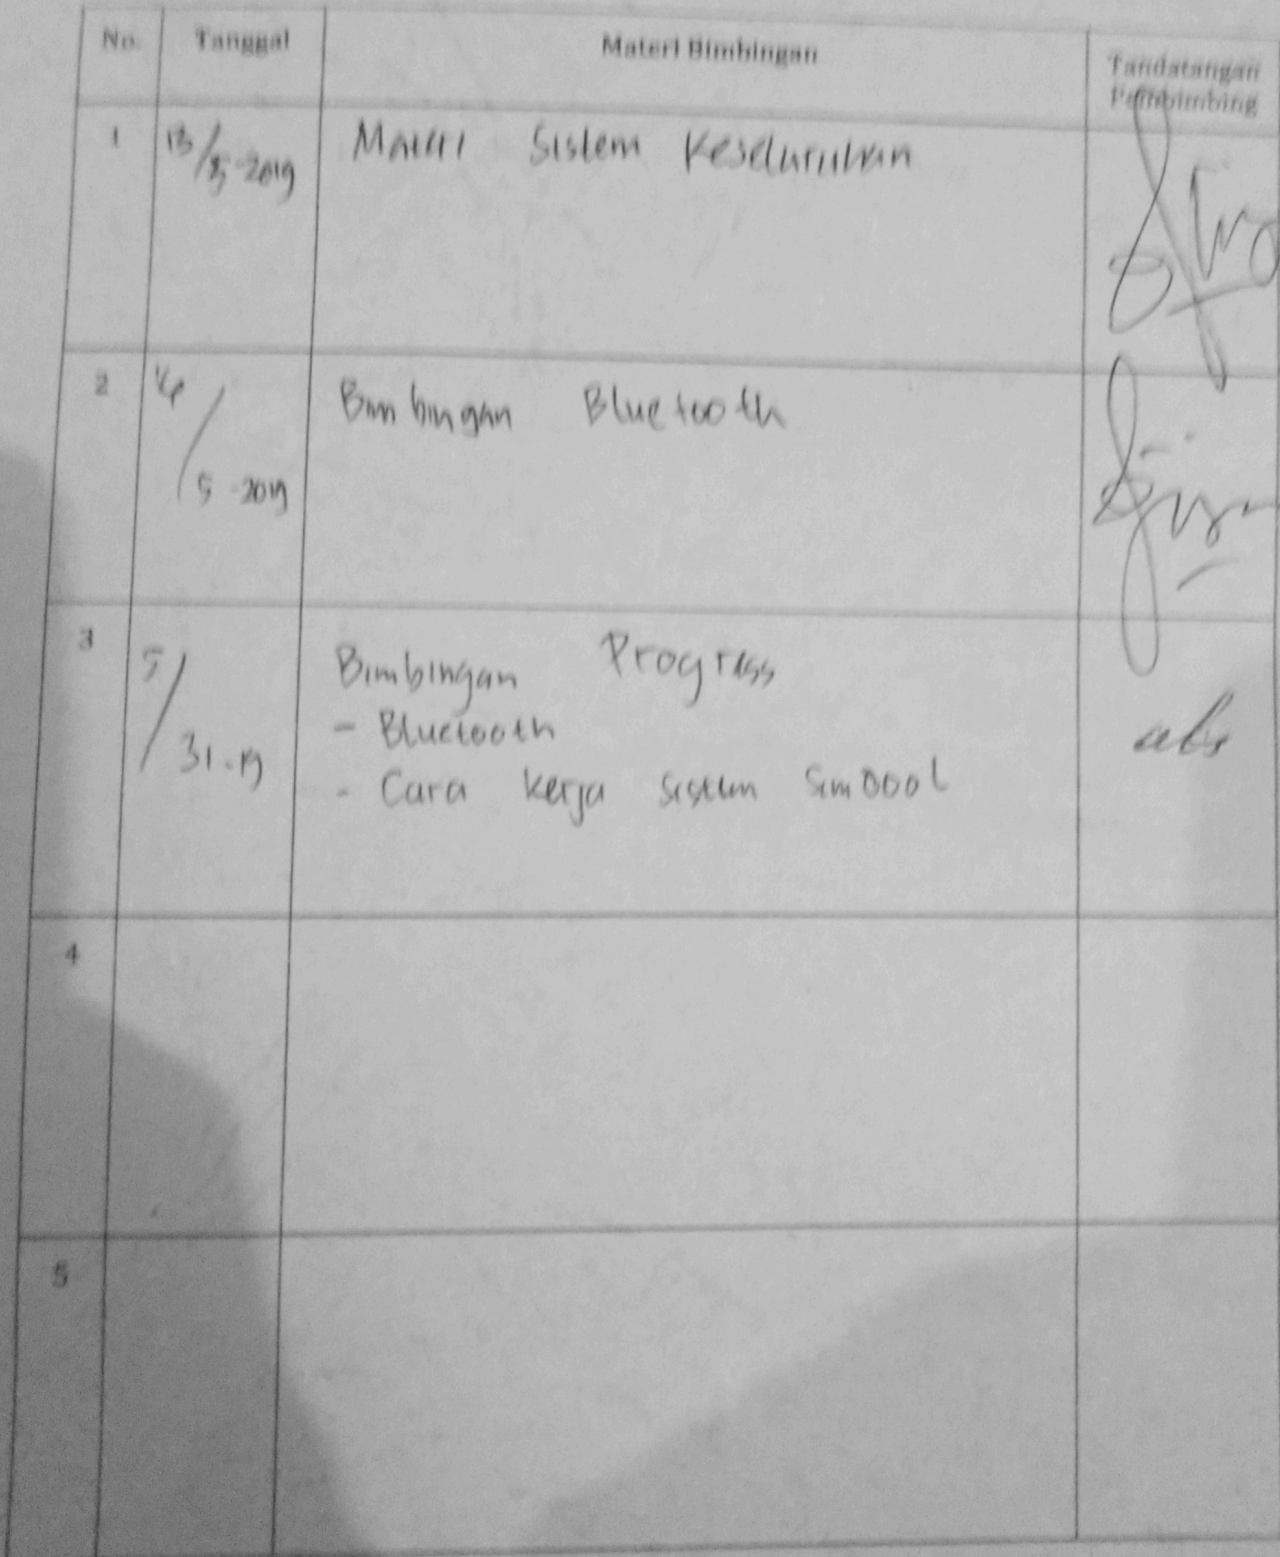 No. Tanggal Materi Bimbingan Tandatangan
Pembimbing
1 13/5-2019 Materi Sistem Keseluruhan
2 16/5-2019 Bimbingan Bluetooth
3 5/31-19 Bimbingan Progress
- Bluetooth
- Cara kerja sistem Sim800L
4
5